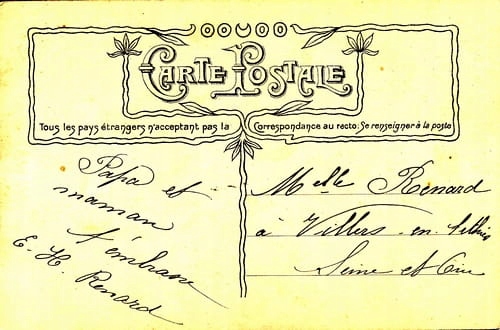 CARTE POSTALE
Tous les pays étrangers n'acceptant pas la Correspondance au recto. Se renseigner à la poste
Papa et
maman
t'embrasse
E. H. Renard
Melle Renard
à Villers-en-
Seine et Oise